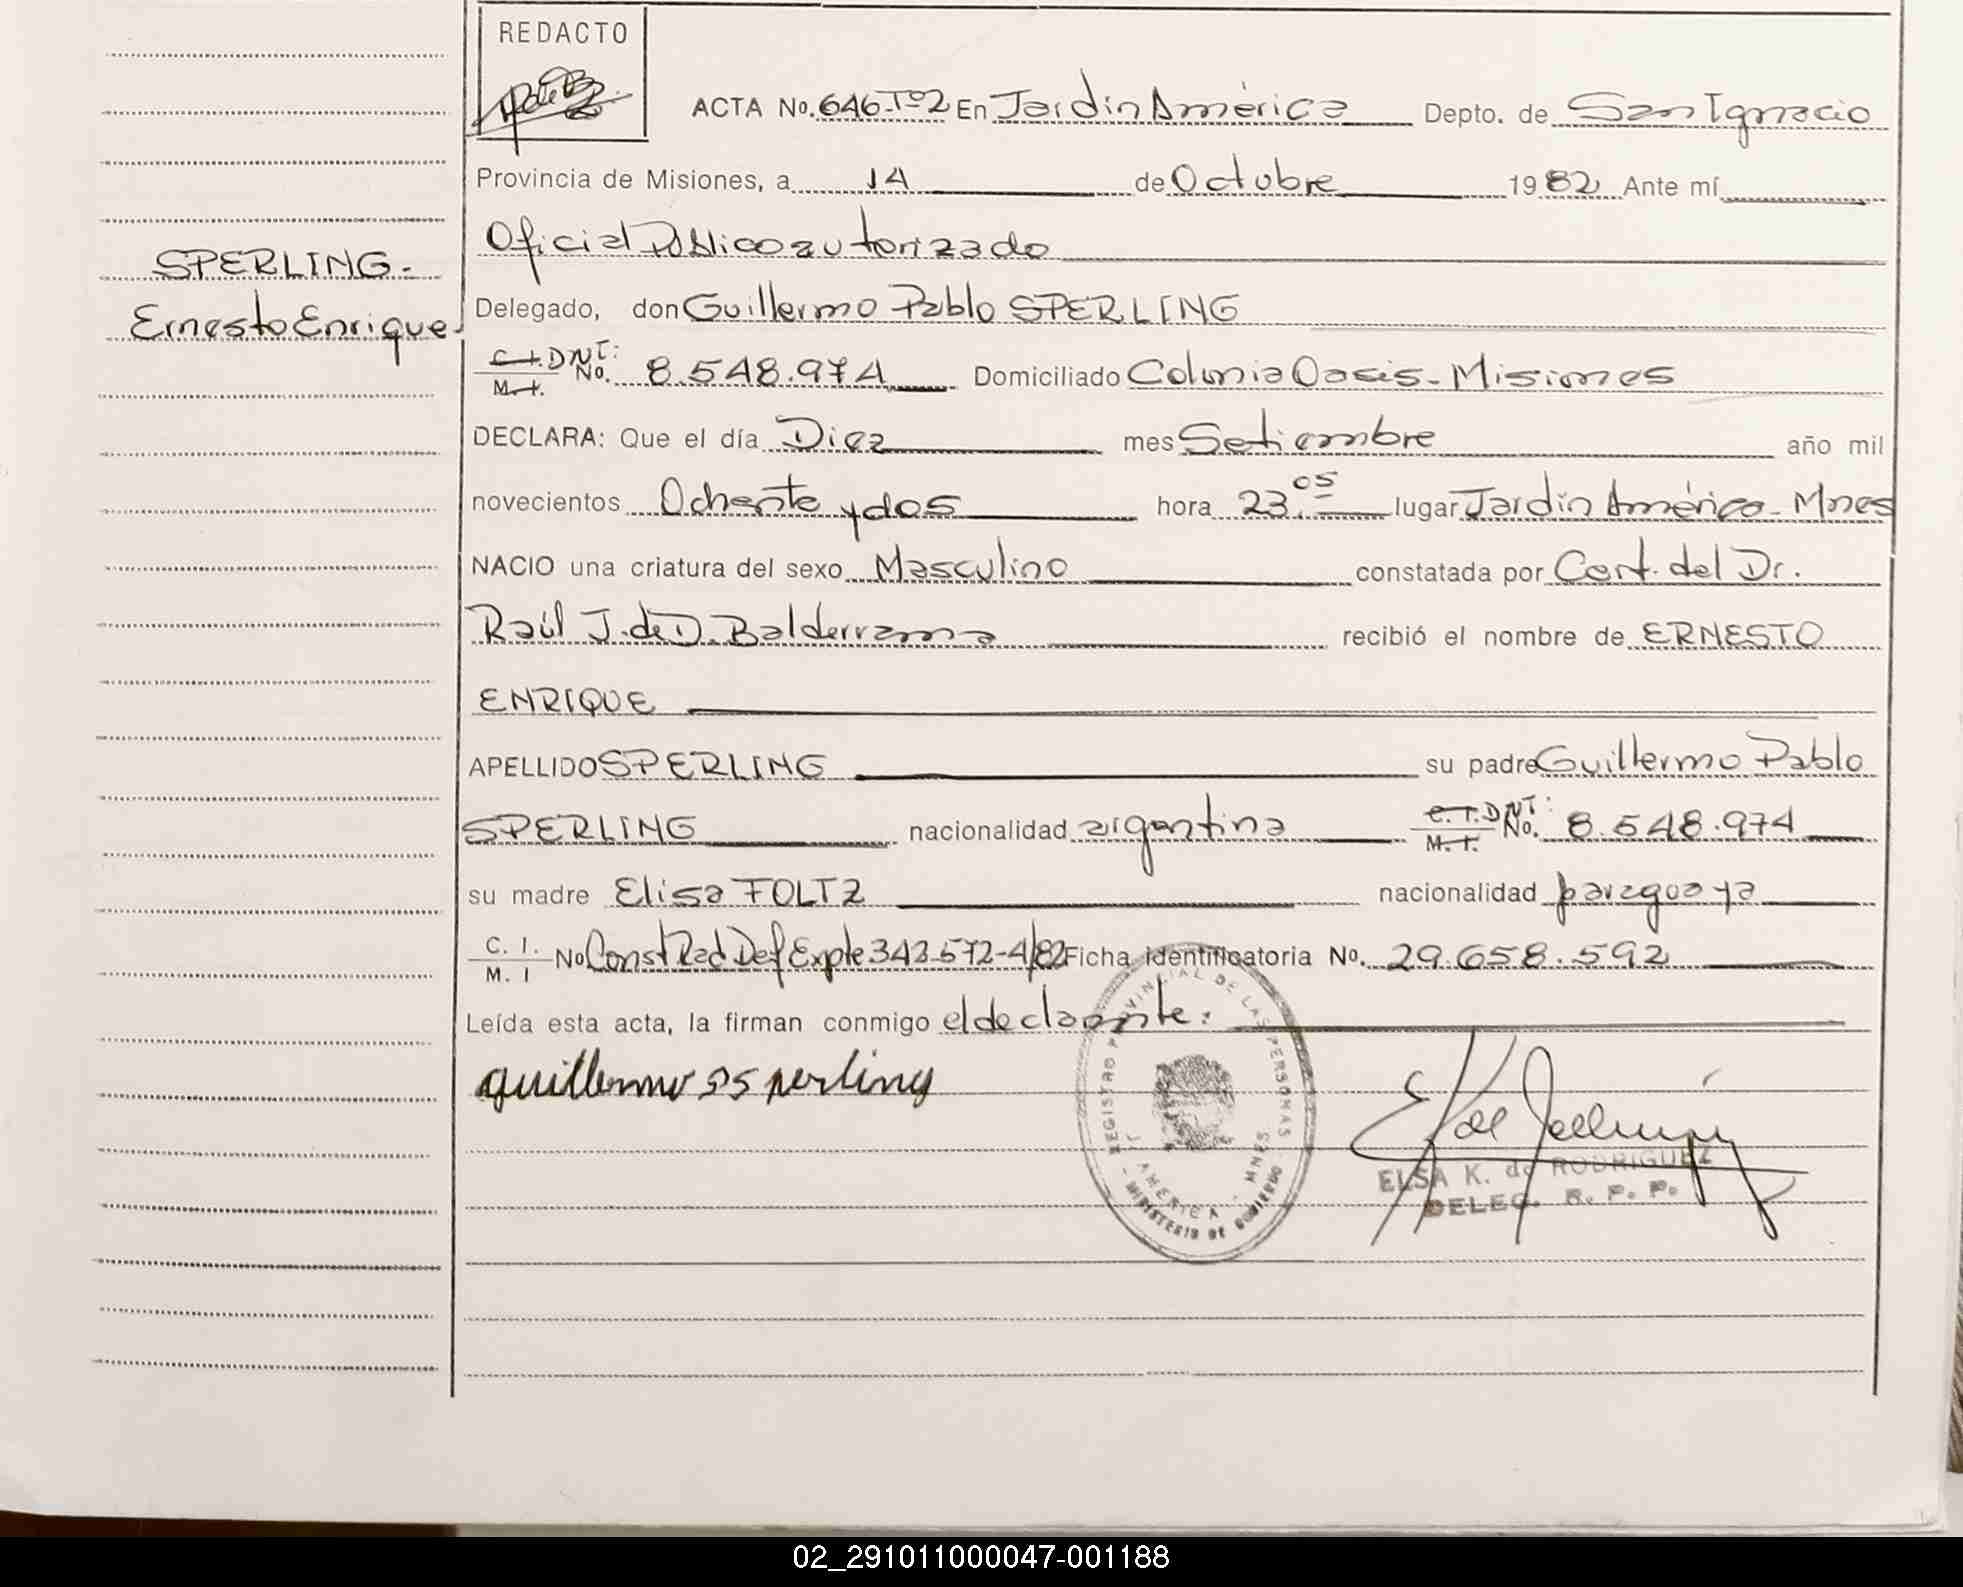 REDACTO
ACTA No. 646-Tº2 En Jardín América Depto. de San Ignacio
Provincia de Misiones, a 14 de Octubre 1982 Ante mí
Oficial Público autorizado
SPERLING.
Ernesto Enrique
Delegado, don Guillermo Pablo SPERLING
C.I. DNI: M.I. No. 8.548.974 Domiciliado Colonia Oasis - Misiones
DECLARA: Que el día Diez mes Setiembre año mil
novecientos Ochenta y dos hora 23.05 lugar Jardín América - Mnes
NACIO una criatura del sexo Masculino constatada por Cert. del Dr.
Raúl J. de D. Balderrama recibió el nombre de ERNESTO
ENRIQUE
APELLIDO SPERLING su padre Guillermo Pablo
SPERLING nacionalidad argentina C.I. DNI: M.I. No. 8.548.974
su madre Elisa FOLTZ nacionalidad paraguaya
C. I. M. I No Const Rad Def Expte 342.572-4/82 Ficha identificatoria No. 29.658.592
Leída esta acta, la firman conmigo el declarante:
guillermo sperling
REGISTRO PROVINCIAL DE LAS PERSONAS
AMERICA - MNES
MINISTERIO DE GOBIERNO
ELSA K. de RODRIGUEZ
DELEG. R. P. P.
02_291011000047-001188